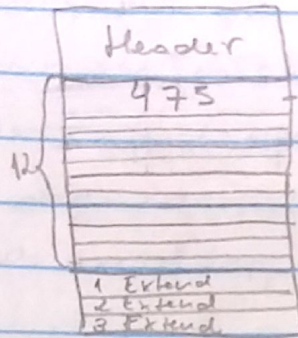 Header
475
12
1 Extend
2 Extend
3 Extend